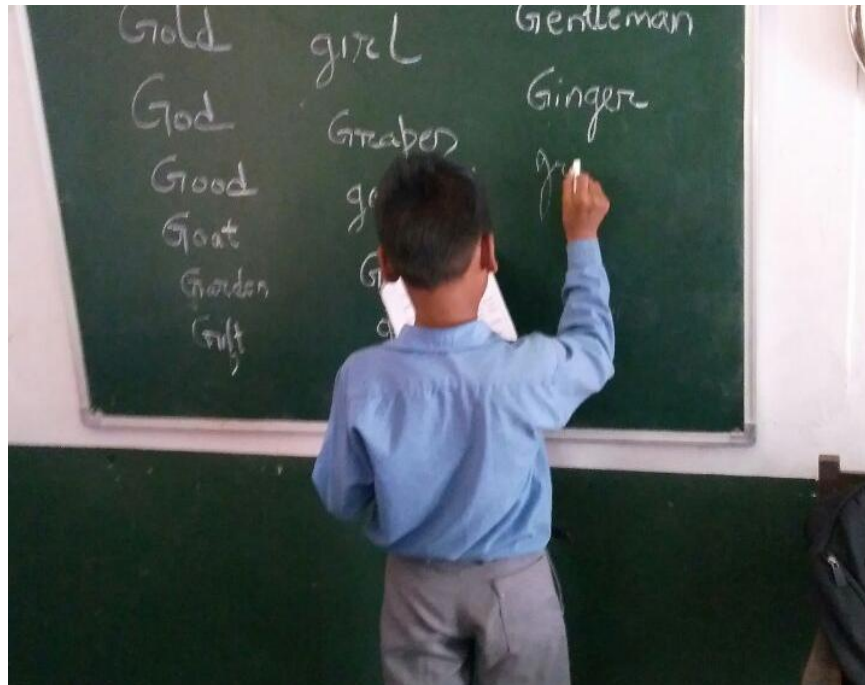 Gold
God
Good
Goat
Garden
Gift
girl
Grapes
Gentleman
Ginger